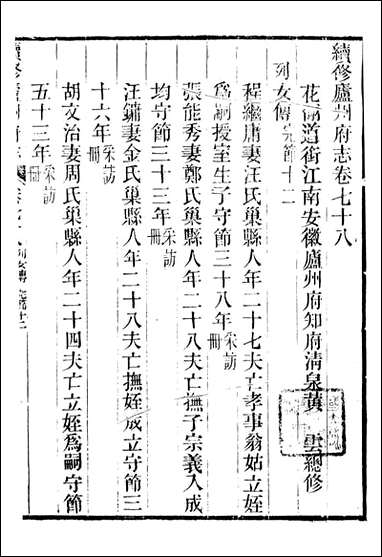 續修廬州府志卷七十八
花翎道銜江南安徽廬州府知府清泉黃　雲總修
列女傳完節十二
程繼庸妻汪氏巢縣人年二十七夫亡孝事翁姑立姪
為嗣授室生子守節三十八年采訪冊
張能秀妻鄭氏巢縣人年二十八夫亡撫子宗義入成
均守節三十三年采訪冊
汪鏞妻金氏巢縣人年二十八夫亡撫姪成立守節三
十六年采訪冊
胡文治妻周氏巢縣人年二十四夫亡立姪為嗣守節
五十三年采訪冊